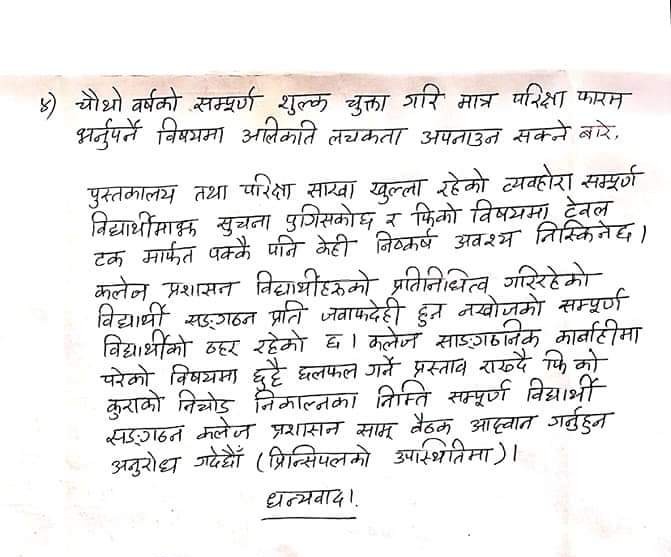 ४) चौथो वर्षको सम्पूर्ण शुल्क चुक्ता गरि मात्र परिक्षा फारम
भर्नुपर्ने विषयमा अलिकति लचकता अपनाउन सक्ने बारे.
पुस्तकालय तथा परिक्षा साखा खुल्ला रहेको व्यवहोरा सम्पूर्ण
विद्यार्थीमाझ सुचना पुगिसकोछ र फिको विषयमा टेवल
टक मार्फत पक्कै पनि केही निष्कर्ष अवश्य निस्किनेछ।
कलेज प्रशासन विद्यार्थीहरुको प्रतिनिधित्व गरिरहेको
विद्यार्थी सङ्गठन प्रति जवाफदेही हुन नखोजको सम्पूर्ण
विद्यार्थीको ठहर रहेको छ। कलेज साङ्गठनिक कार्बाहीमा
परेको विषयमा छुट्टै छलफल गर्ने प्रस्ताव राख्दै फि को
कुराको निचोड निकाल्नका निम्ति सम्पूर्ण विद्यार्थी
सङ्गठन कलेज प्रशासन सामू बैठक आह्वान गर्नुहुन
अनुरोध गर्दछौं (प्रिन्सिपलको उपस्थितिमा)।
धन्यवाद।